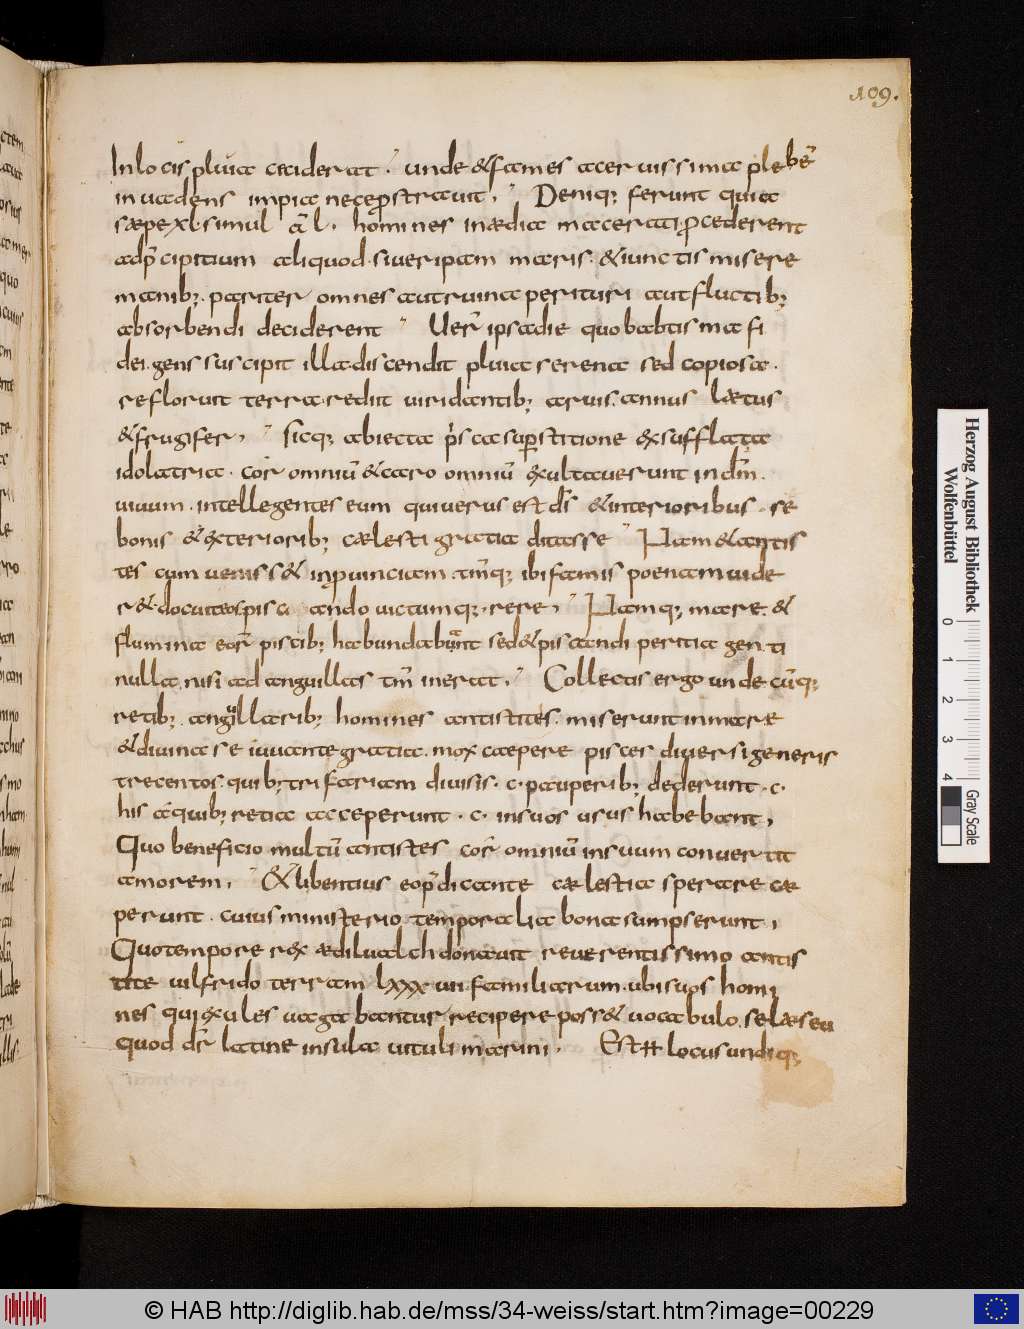 109.
In lo cis pluuia ceciderat. unde & fames aceruissima plebē
inuadens impia nece pstrauit, Deniq; ferunt quia
sæpe xl simul aut l. homines inædia macerati pcederent
ad p̄cipitium aliquod. siue ripam maris. & iunctis misere
manib;. pariter omnes aut ruina perituri aut fluctib;
absorbendi deciderent Uer̄ ipsa die quo babtisma fi
dei. gens suscipit illa discendit pluuia serena sed copiosa.
refloruit terra. rediit uiridantib; aruis. annus lætus
& frugifer, Sicq; abiecta p̄sca supstitione exsufflata
idolatria. cor omniū & caro omniū exultauerunt in dm̄.
uiuum. intellegentes eum qui uerus est ds̄ & interioribus se
bonis & exterioribus; cælesti gratia ditasse Nam & antis
tes cum uenisset in puinciam. tm̄q; ibi famis poenam uide
r& docuit eos piscando uictum q;rere, Namq; mare. &
flumina eor̄ piscib; habundabant sed & piscandi peritia genti
nulla. nisi ad anguillas tm̄ inerat, Collectis ergo undecūq;
retib; anguillarib; homines antistites. miserunt in mare
& diuina se iuuante gratia. mox caepere pisces diuersi generis
trecentos. quib; trifariam diuisis. c. pauperib; dederunt. c.
his a quib; retia acceperunt. c. in suos usus habebant,
Quo beneficio multū antistes cor omniū in suum conuertit
amorem, & libentius eo p̄dicante cælestia sperare cæ
perunt. cuius ministerio temporalia bona sumpserunt,
Quo tempore rex ædilualch donauit reuerentissimo antis
tite uilfrido terram lxxxuii familiarum. ubi suos homi
nes qui exules uagabantur, recipere poss& uocabulo. selæseu
quod dr̄ latine insula uituli marini. Est locus undiq;
Herzog August Bibliothek
Wolfenbüttel
0 1 2 3 4
Gray Scale
© HAB http://diglib.hab.de/mss/34-weiss/start.htm?image=00229